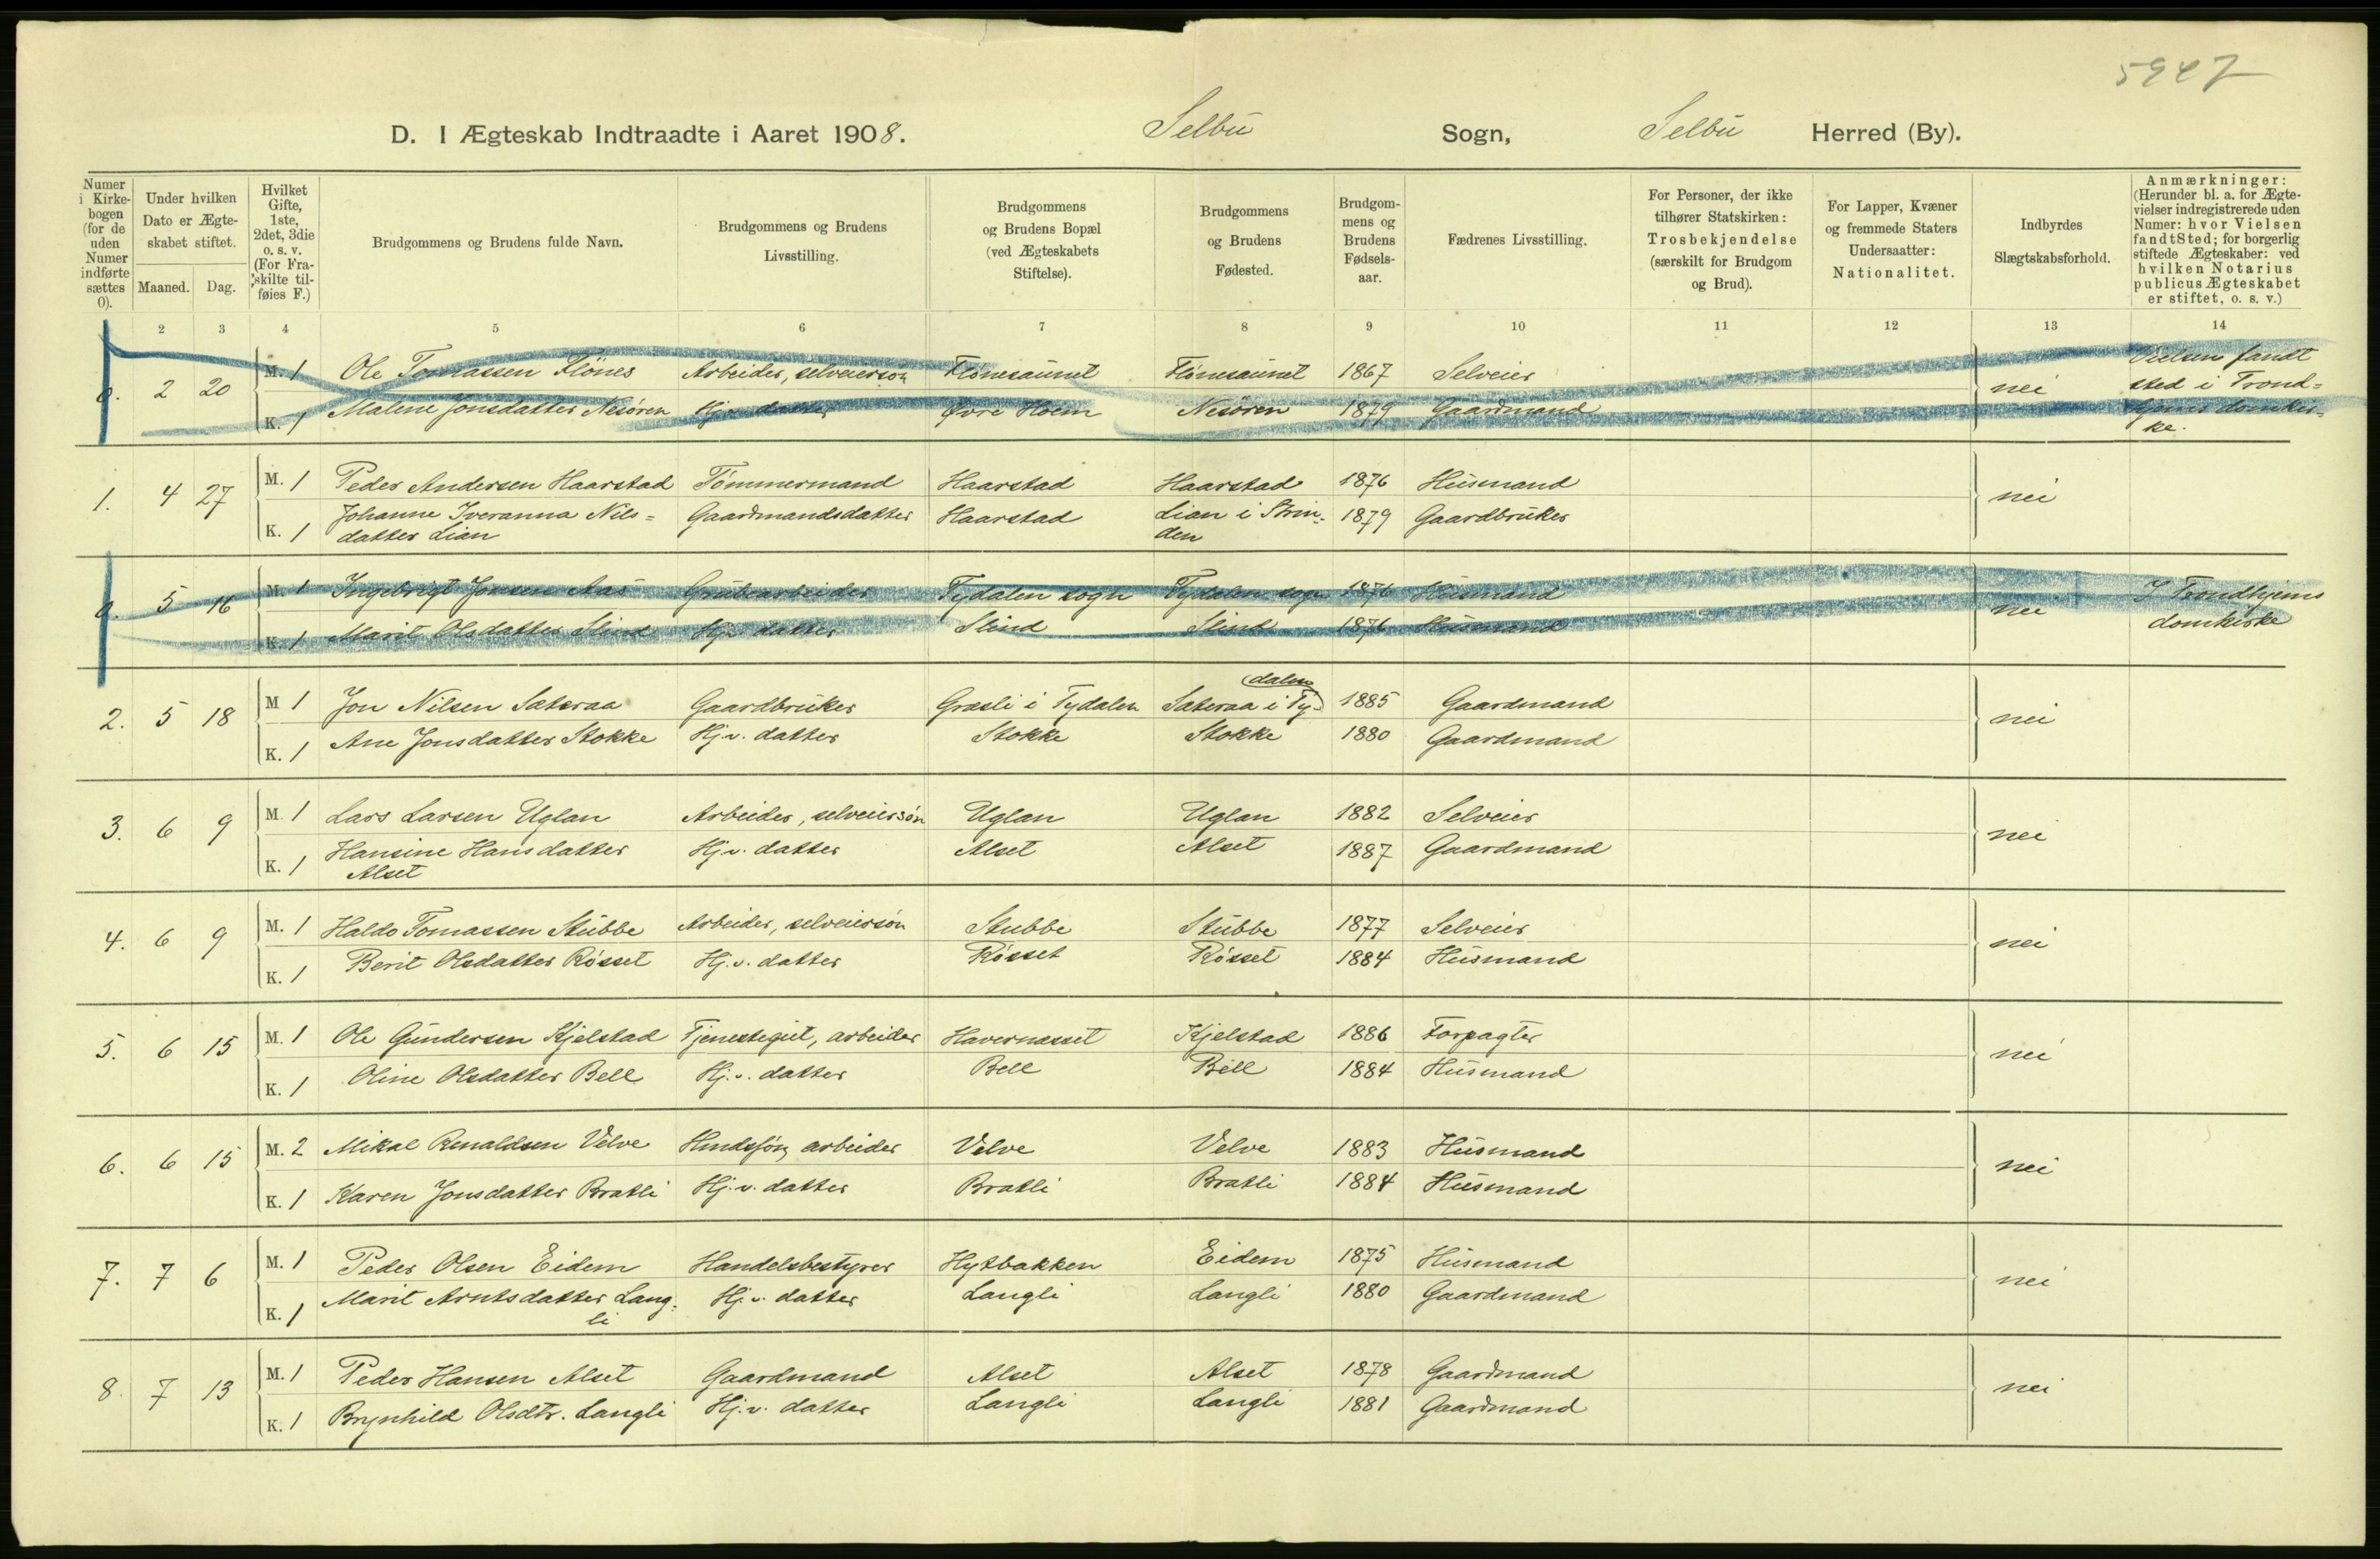 5947
D. I Ægteskab Indtraadte i Aaret 1908. Selbu Sogn, Selbu Herred (By).
Numer i Kirkebogen (for de uden Numer indførte sættes 0).
Under hvilken Dato er Ægteskabet stiftet.
Maaned. Dag.
Hvilket Gifte, 1ste, 2det, 3die o. s. v. (For Fraskilte tilføies F.)
Brudgommens og Brudens fulde Navn.
Brudgommens og Brudens Livsstilling.
Brudgommens og Brudens Bopæl (ved Ægteskabets Stiftelse).
Brudgommens og Brudens Fødested.
Brudgommens og Brudens Fødselsaar.
Fædrenes Livsstilling.
For Personer, der ikke tilhører Statskirken: Trosbekjendelse (særskilt for Brudgom og Brud).
For Lapper, Kvæner og fremmede Staters Undersaatter: Nationalitet.
Indbyrdes Slægtskabsforhold.
Anmærkninger: (Herunder bl. a. for Ægtevielser indregistrerede uden Numer: hvor Vielsen fandt Sted; for borgerlig stiftede Ægteskaber: ved hvilken Notarius publicus Ægteskabet er stiftet, o. s. v.)
2 3 4 5 6 7 8 9 10 11 12 13 14
0. 2 20 M. 1 Ole Tomassen Flönes Arbeider, selveiersön Flönesaunet Flönesaunet 1867 Selveier nei Vielsen fandt sted i Trond=
K. 1 Malene Jonsdatter Nesören Hj. v. datter Övre Hoem Nesören 1879 Gaardmand hjems domkir=
ke.
1. 4 27 M. 1 Peder Andersen Haarstad Tömmermand Haarstad Haarstad 1876 Husmand nei
K. 1 Johanne Iveranna Nils= Gaardmandsdatter Haarstad Lian i Strin= 1879 Gaardbruker
datter Lian den
0. 5 16 M. 1 Ingebrigt Jonsen Aas Grubearbeider Tydalen sogn Tydalen sogn 1876 Husmand nei I Trondhjems
K. 1 Marit Olsdatter Slind Hj. v. datter Slind Slind 1876 Husmand domkirke
dalen
2. 5 18 M 1 Jon Nilsen Sateraa Gaardbruker Græsli i Tydalen Sateraa i Ty= 1885 Gaardmand nei
K. 1 Ane Jonsdatter Stokke Hj. v. datter Stokke Stokke 1880 Gaardmand
3. 6 9 M. 1 Lars Larsen Uglan Arbeider, selveiersön Uglan Uglan 1882 Selveier nei
K. 1 Hansine Hansdatter Hj. v. datter Alset Alset 1887 Gaardmand
Alset
4. 6 9 M. 1 Haldo Tomassen Stubbe Arbeider, selveiersön Stubbe Stubbe 1877 Selveier nei
K. 1 Berit Olsdatter Rösset Hj. v. datter Rösset Rösset 1884 Husmand
5. 6 15 M. 1 Ole Gundersen Kjelstad Tjenestegut, arbeider Havernesset Kjelstad 1886 Forpagter nei
K. 1 Oline Olsdatter Bell Hj. v. datter Bell Bell 1884 Husmand
6. 6 15 M. 2 Mikal Renaldsen Velve arbeider Velve Velve 1883 Husmand nei
K. 1 Karen Jonsdatter Bratli Hj. v. datter Bratli Bratli 1884 Husmand
7. 7 6 M. 1 Peder Olsen Eidem Handelsbestyrer Hytbakken Eidem 1875 Husmand nei
K. 1 Marit Arntsdatter Lang= Hj. v. datter Langli Langli 1880 Gaardmand
li
8. 7 13 M. 1 Peder Hansen Alset Gaardmand Alset Alset 1878 Gaardmand nei
K. 1 Brynhild Olsdtr. Langli Hj. v. datter Langli Langli 1881 Gaardmand